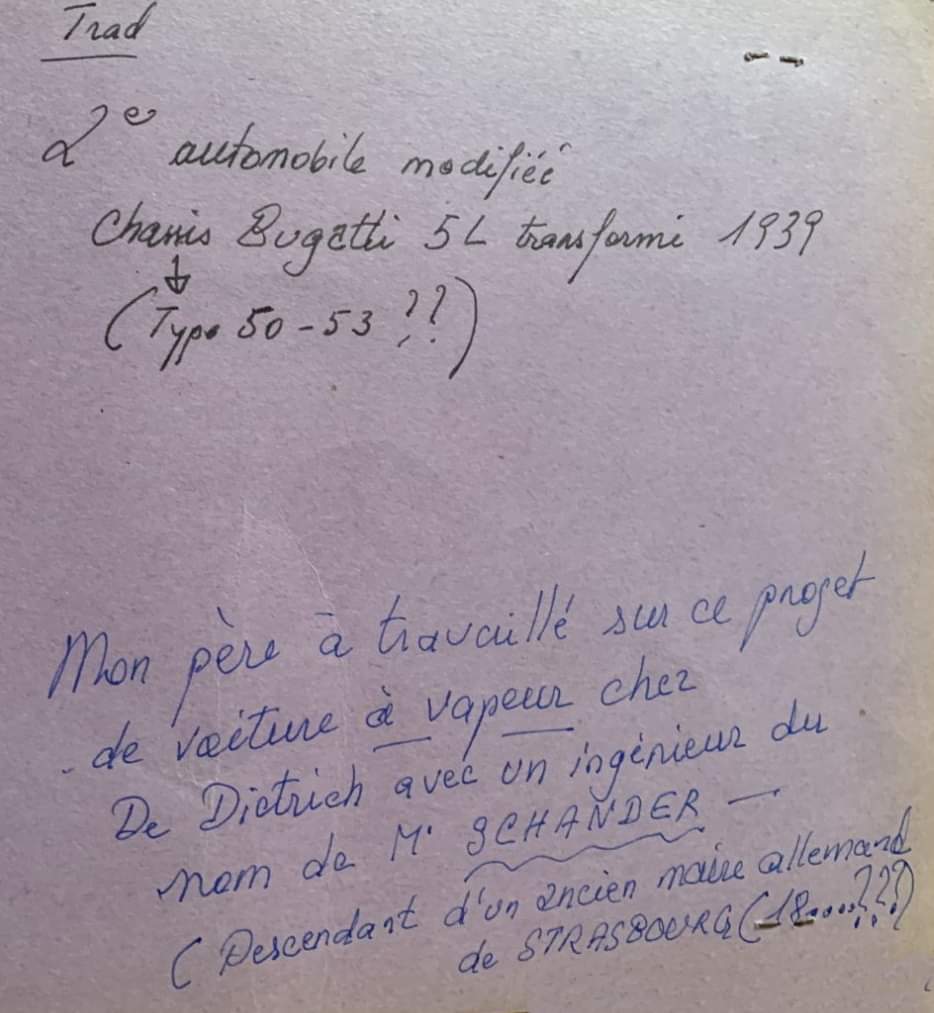 Trad
2e automobile modifiée
Chassis Bugatti 5L transformé 1939
(Type 50-53 ??)
Mon père à travaillé sur ce projet
de voiture à vapeur chez
De Dietrich avec un ingénieur du
nom de Mr SCHANDER —
(Descendant d'un ancien maire allemand
de STRASBOURG (18....???)